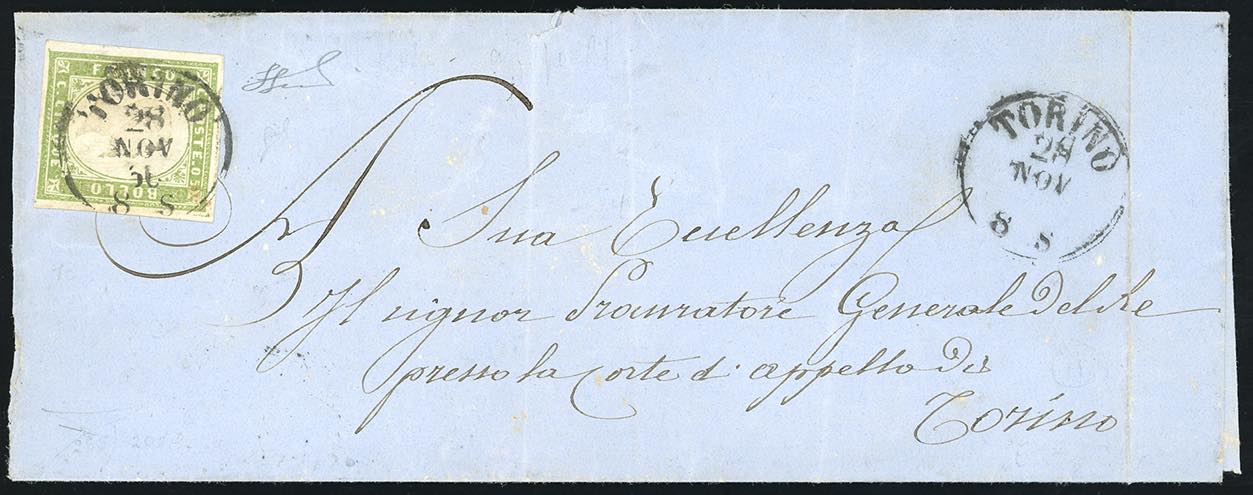 FRANCO
POSTE.
BOLLO
C. CINQUE
TORINO
28
NOV
8 S
TORINO
28
NOV
8 S
A Sua Eccellenza
Il signor Procuratore Generale Del Re
presso la Corte d'appello Di
Torino